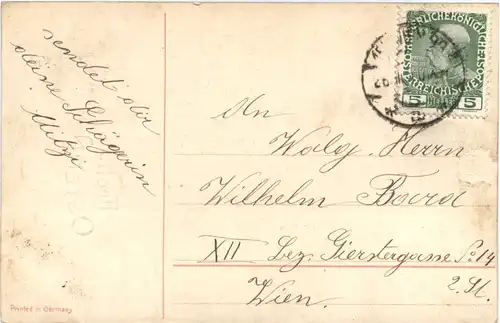 sendet dir
deine Schägerin
Mitzi
KAISERLICHE KÖNIGLICHE
ÖSTERREICHISCHE POST
5 5
An
Wolg. Herrn
Wilhelm
XII Bez. Gierstergasse No 14
2. St.
Wien.
Printed in Germany